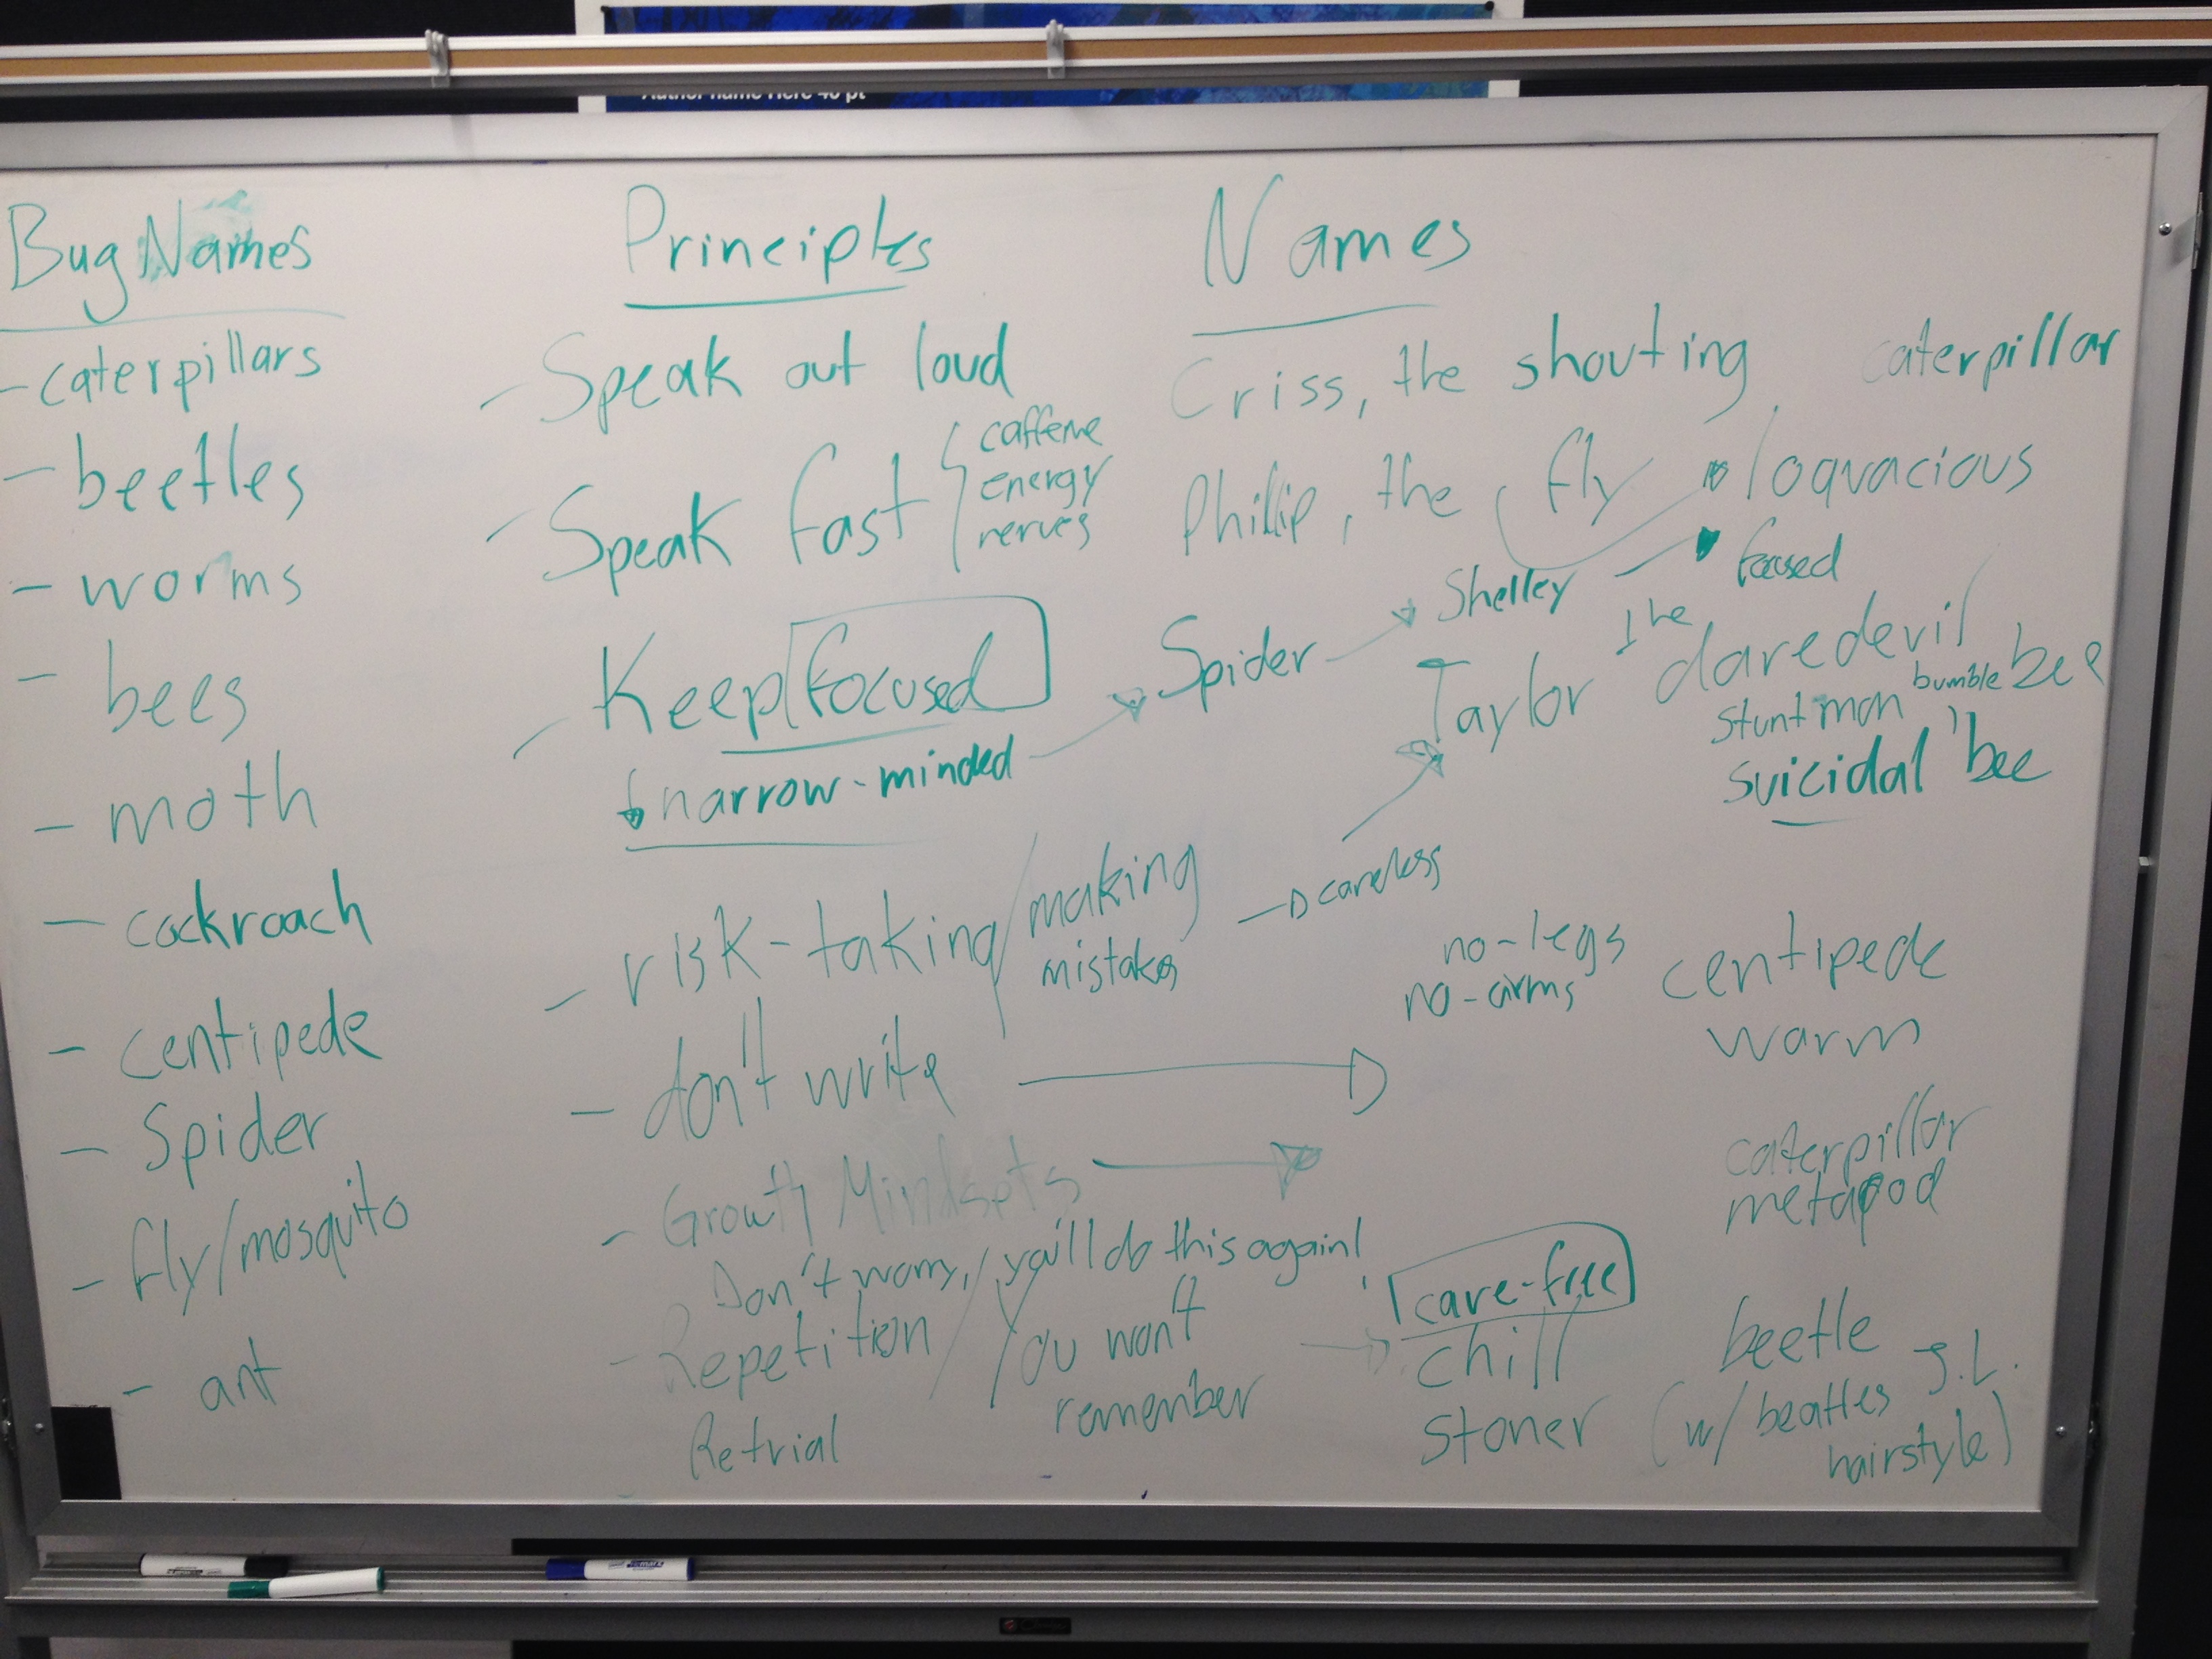 Author name Here 40 pt
Bug Names
- caterpillars
- beetles
- worms
- bees
- moth
- cockroach
- centipede
- Spider
- fly/mosquito
- ant
Principles
- Speak out loud
- Speak fast
caffeine
energy
nerves
- Keep focused
narrow-minded
- risk-taking/making
mistakes
careless
- don't write
- Growth Mindsets
Don't worry, you'll do this again!
- Repetition / You won't
remember
Retrial
Names
Criss, the shouting caterpillar
Phillip, the fly loquacious
Spider Shelley focused
Taylor the daredevil
stuntman bumble bee
suicidal bee
no-legs centipede
no-arms
warm
caterpillar
metapod
care-free
chill beetle J.L.
stoner (w/ beatles
hairstyle)